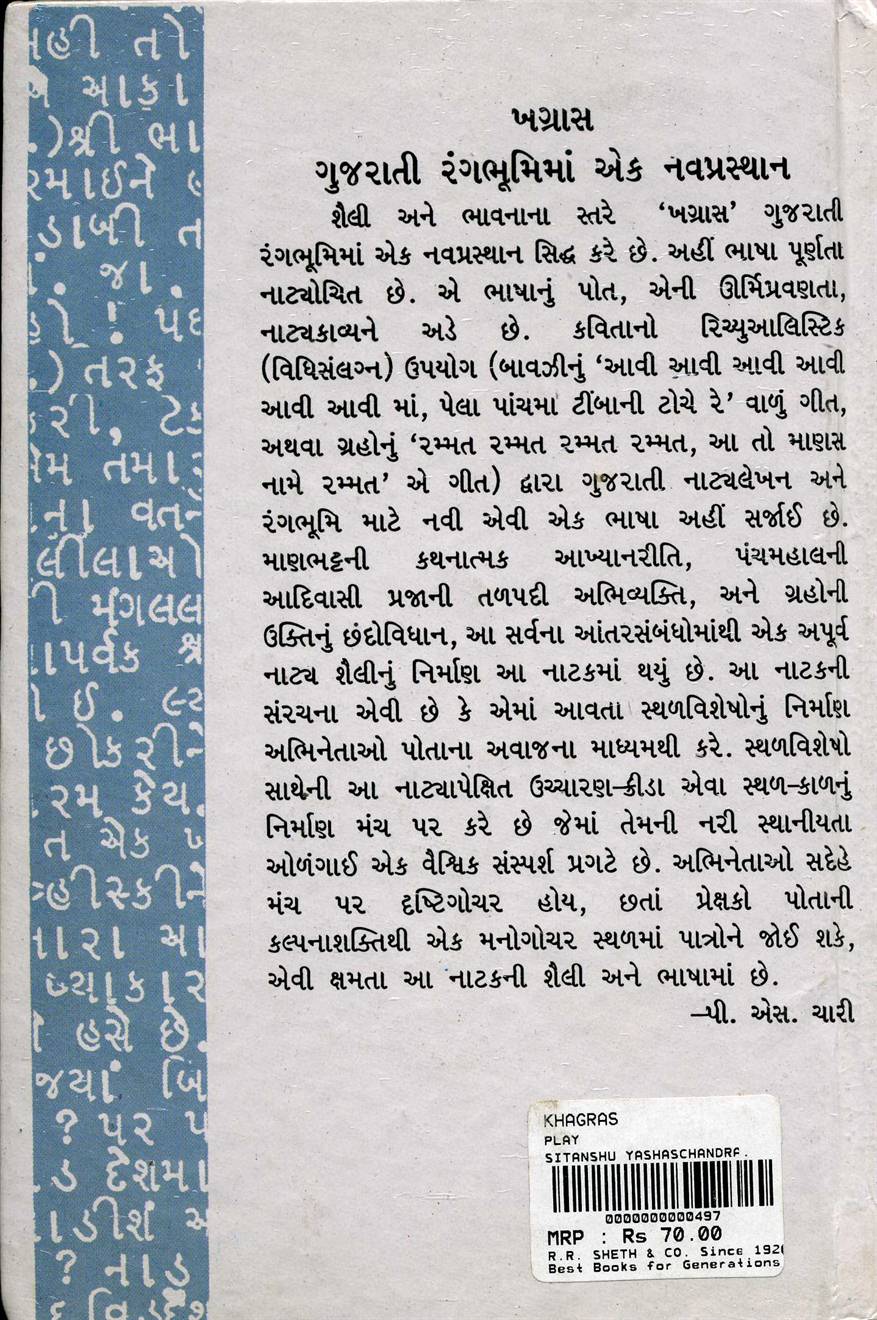 ખગ્રાસ
ગુજરાતી રંગભૂમિમાં એક નવપ્રસ્થાન
શૈલી અને ભાવનાના સ્તરે ‘ખગ્રાસ’ ગુજરાતી
રંગભૂમિમાં એક નવપ્રસ્થાન સિદ્ધ કરે છે. અહીં ભાષા પૂર્ણતા
નાટ્યોચિત છે. એ ભાષાનું પોત, એની ઊર્મિપ્રવણતા,
નાટ્યકાવ્યને અડે છે. કવિતાનો રિચ્યુઆલિસ્ટિક
(વિધિસંલગ્ન) ઉપયોગ (બાવઝીનું ‘આવી આવી આવી આવી
આવી આવી માં, પેલા પાંચમા ટીંબાની ટોચે રે’ વાળું ગીત,
અથવા ગ્રહોનું ‘રમ્મત રમ્મત રમ્મત રમ્મત, આ તો માણસ
નામે રમ્મત’ એ ગીત) દ્વારા ગુજરાતી નાટ્યલેખન અને
રંગભૂમિ માટે નવી એવી એક ભાષા અહીં સર્જાઈ છે.
માણભટ્ટની કથનાત્મક આખ્યાનરીતિ, પંચમહાલની
આદિવાસી પ્રજાની તળપદી અભિવ્યક્તિ, અને ગ્રહોની
ઉક્તિનું છંદોવિધાન, આ સર્વના આંતરસંબંધોમાંથી એક અપૂર્વ
નાટ્ય શૈલીનું નિર્માણ આ નાટકમાં થયું છે. આ નાટકની
સંરચના એવી છે કે એમાં આવતા સ્થળવિશેષોનું નિર્માણ
અભિનેતાઓ પોતાના અવાજના માધ્યમથી કરે. સ્થળવિશેષો
સાથેની આ નાટ્યાપેક્ષિત ઉચ્ચારણ–ક્રીડા એવા સ્થળ–કાળનું
નિર્માણ મંચ પર કરે છે જેમાં તેમની નરી સ્થાનીયતા
ઓળંગાઈ એક વૈશ્વિક સંસ્પર્શ પ્રગટે છે. અભિનેતાઓ સદેહે
મંચ પર દૃષ્ટિગોચર હોય, છતાં પ્રેક્ષકો પોતાની
કલ્પનાશક્તિથી એક મનોગોચર સ્થળમાં પાત્રોને જોઈ શકે,
એવી ક્ષમતા આ નાટકની શૈલી અને ભાષામાં છે.
–પી. એસ. ચારી
KHAGRAS
PLAY
SITANSHU YASHASCHANDRA.
0000000000497
MRP : Rs 70.00
R.R. SHETH & CO. Since 1926
Best Books for Generations